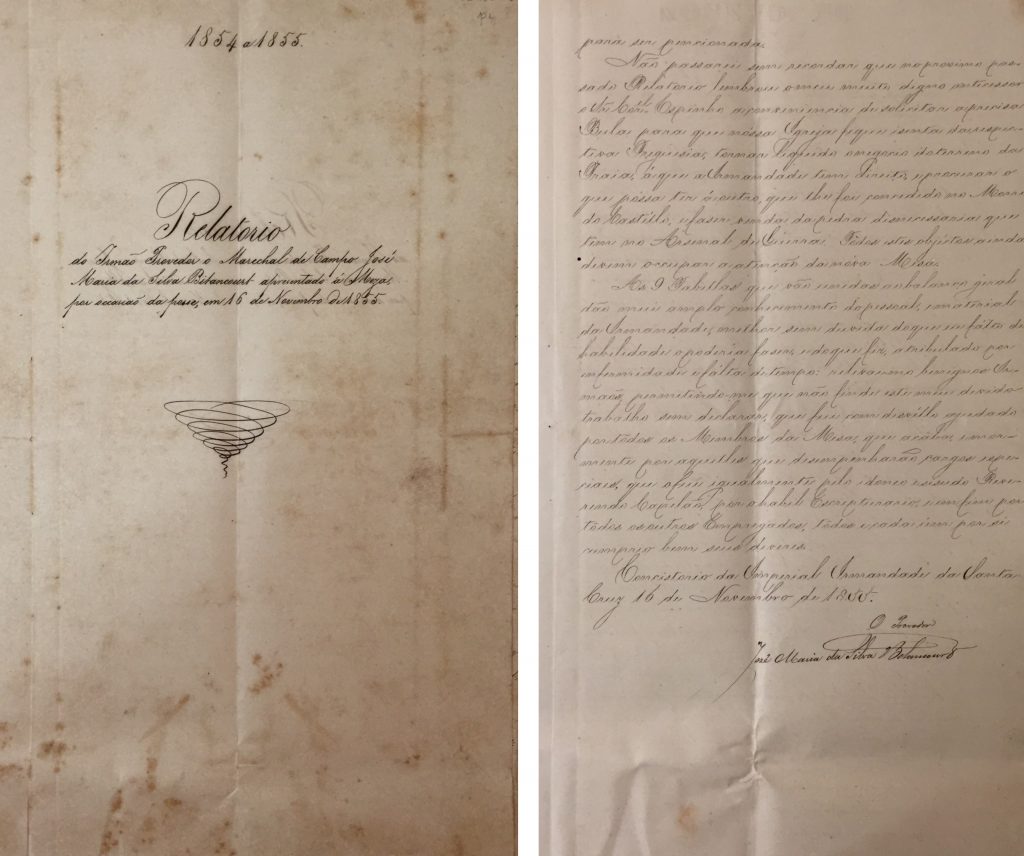 1854 a 1855.
Relatorio
do Irmão Provedor o Marechal de Campo José
Maria da Silva Bitancourt aprezentado á Meza,
por occasião da posse, em 16 de Novembro de 1855.
para ser pencionada.
Não passarei sem recordar que no proximo pas-
sado Relatorio lembrou o meu muito digno antecessor
o Sr. Espinho a conveniencia de solicitar a precisa
Bula para que nossa Igreja fique isenta da respec-
tiva Freguesia, tornar liquido o negocio do terreno da
Praia, á que a Irmandade tem direito, e procurar o
que possa ter á outro, que lhe foi concedido no Morro
do Castéllo, e faser venda da pedra disnecessaria que
tem no Arsenal de Guerra. Tódos estes objétos ainda
devem occupar a atenção da nóva Mesa.
As 9 Tabellas que vão unidas ao balanço geral
dão mui amplo conhecimento do pessoal, e material
da Irmandade, melhor sem duvida do que eu fálto de
habilidade o poderia faser, e do que fiz, atribulado por
infermidade e fálta de tempo: relevai-me benignos Ir-
mãos, permitindo-me que não finde este meu devido
trabalho sem declarar, que fui com disvéllo ajudado
por tódos os Membros da Mesa, que acába, e mór-
mente por aquelles que desempenharão cargos espe-
ciais, que o fui igualmente pelo idoneo e sisudo Reve-
rendo Capelão, por o habil Escripturario, e emfim por
tódos os outros Empregados, tódos e cada um por si
cumprio bem seus deveres.
Concistorio da Imperial Irmandade da Santa
Cruz 16 de Novembro de 1855.
O Provedor
José Maria da Silva Betancourt